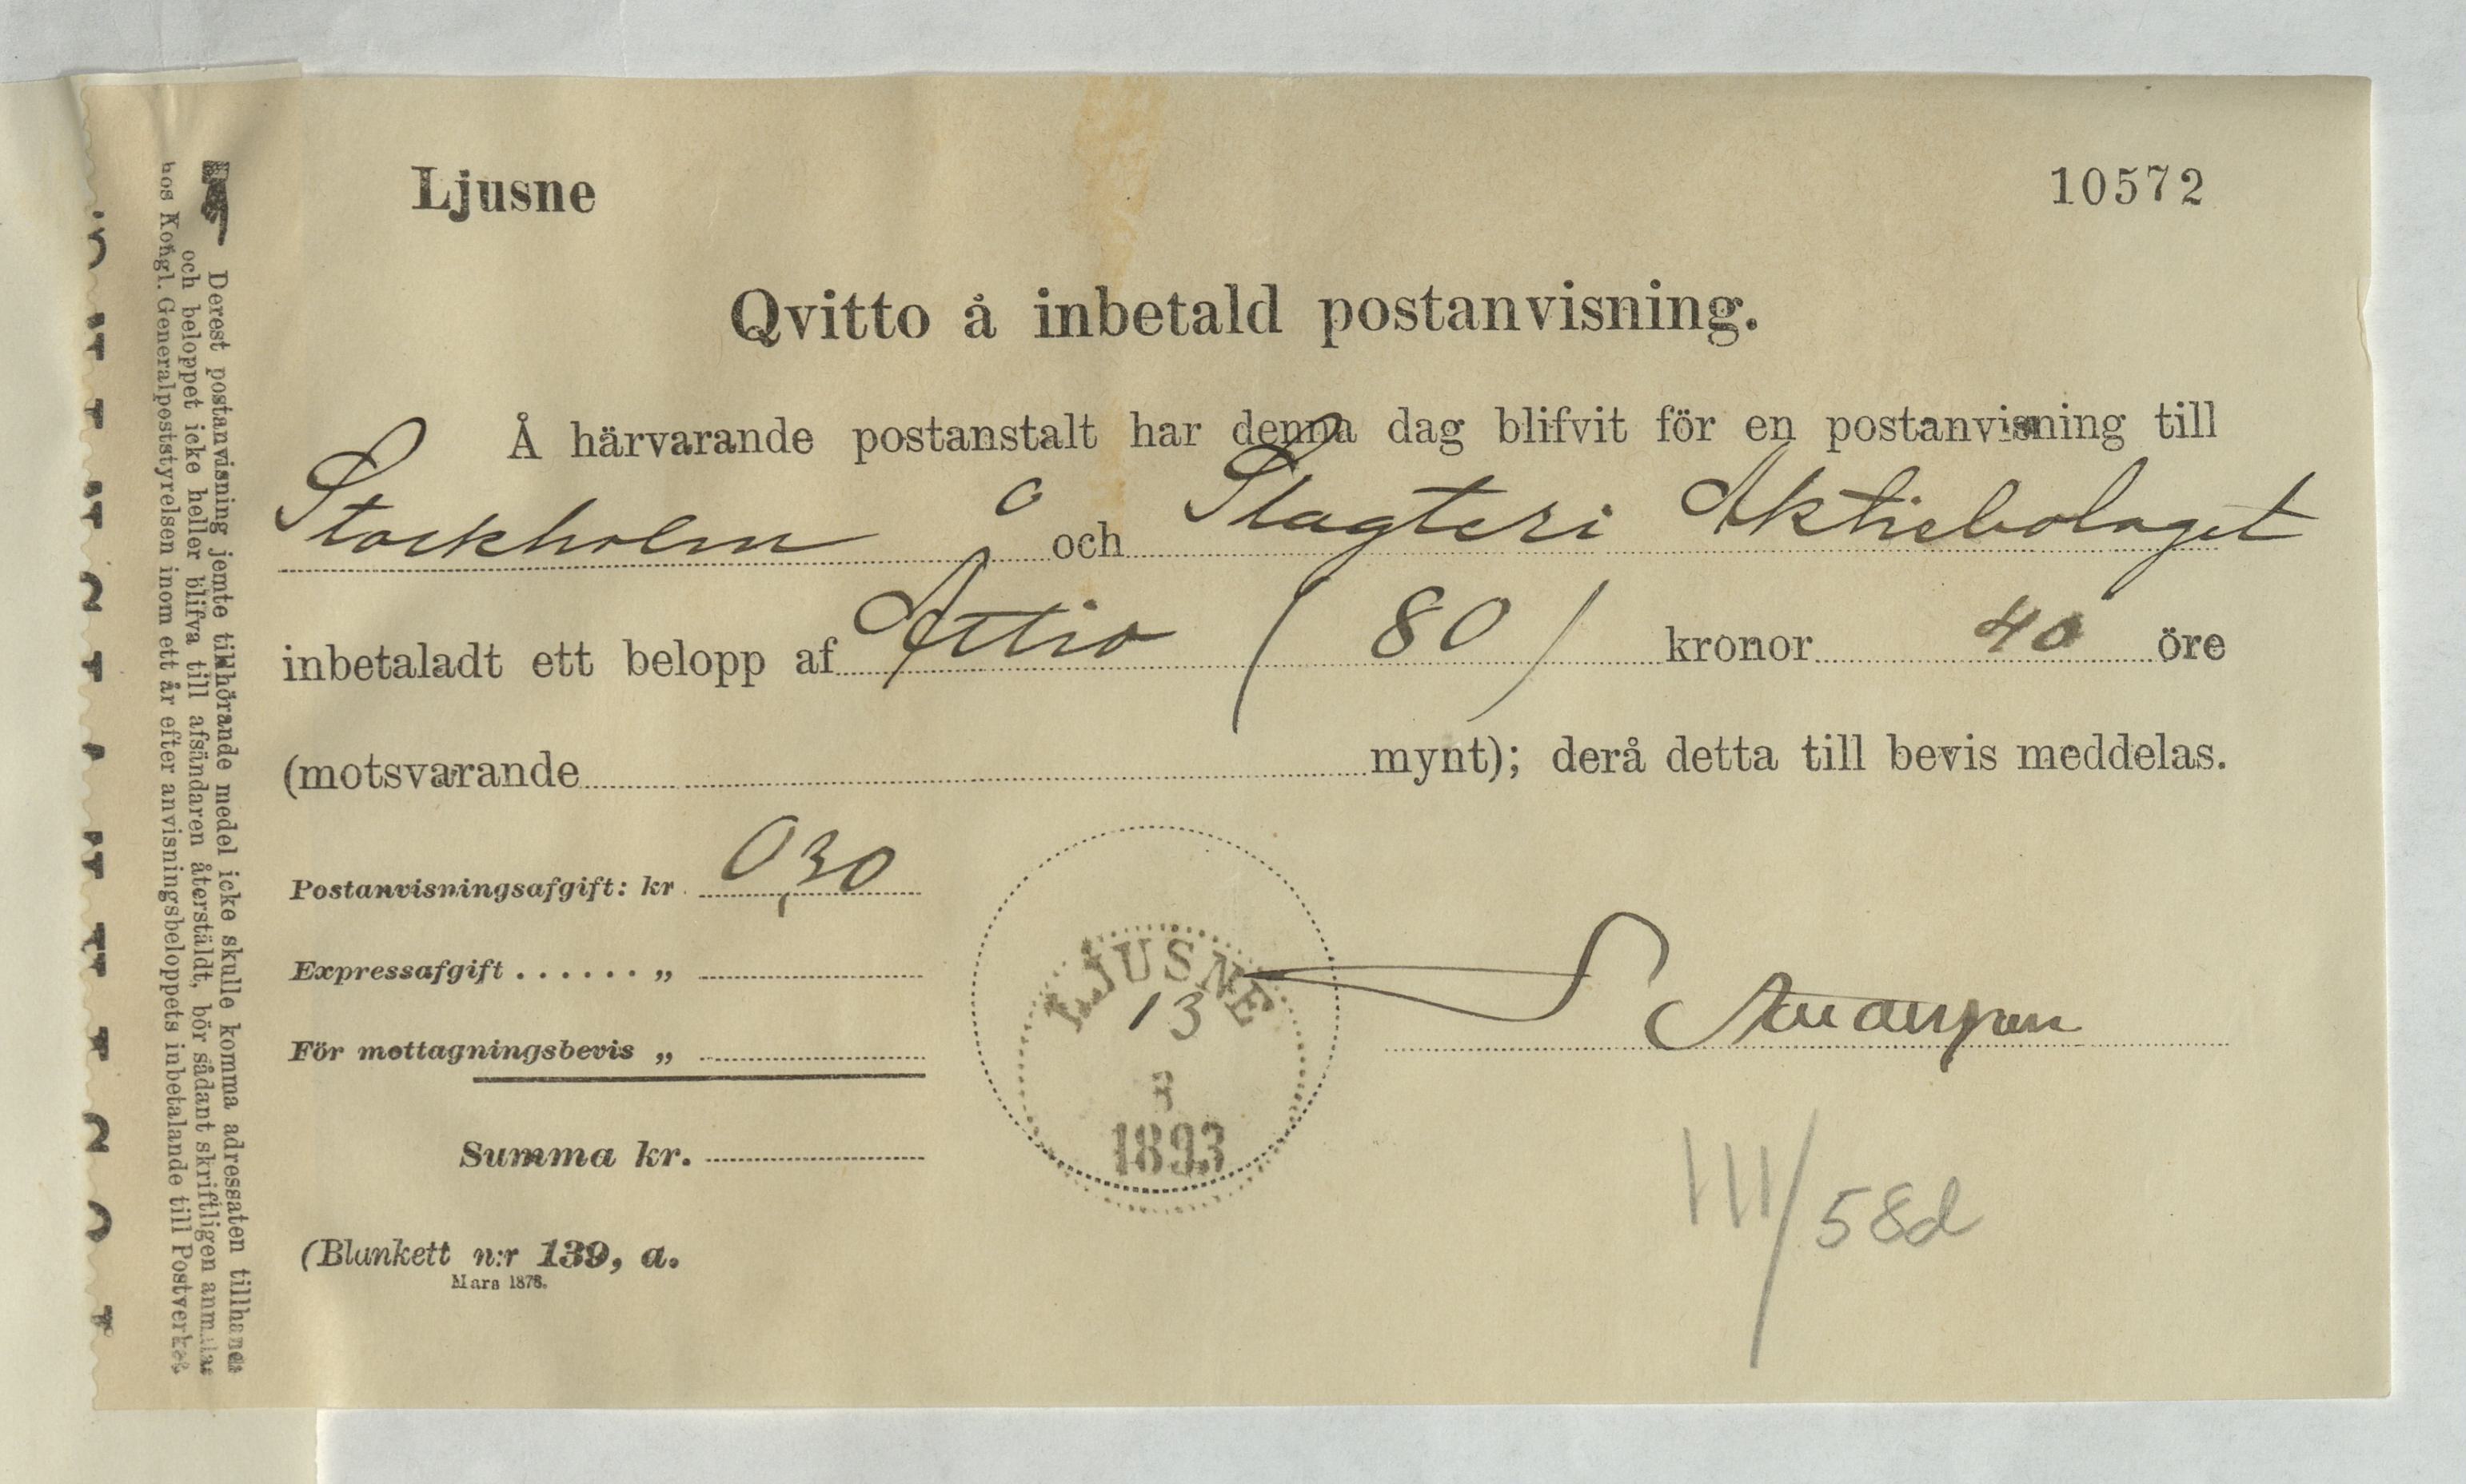 Ljusne
10572
Qvitto å inbetald postanvisning.
Å härvarande postanstalt har denna dag blifvit för en postanvisning till
Stockholm och Slagteri Aktiebolaget
inbetaladt ett belopp af Åttio (80) kronor 40 öre
(motsvarande mynt); derå detta till bevis meddelas.
Postanvisningsafgift: kr. 0,30
Expressafgift . . . . . . „
För mottagningsbevis „
Summa kr.
(Blankett n:r 139, a.
Mars 1878.
LJUSNE
13
3
1893
III/58d
Derest postanvisning jemte tillhörande medel icke skulle komma adressaten tillhanda
och beloppet icke heller blifva till afsändaren återstäldt, bör sådant skriftligen anmälas
hos Kongl. Generalpoststyrelsen inom ett år efter anvisningsbeloppets inbetalande till Postverket.